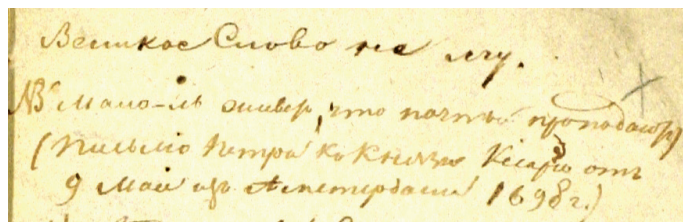 Великое Слово не лгу.
NB Мало-ль живер, что почты пропадают
(Письмо Петра ко Князю Кесарю отъ
9 Мая изъ Амстердама 1698 г.)